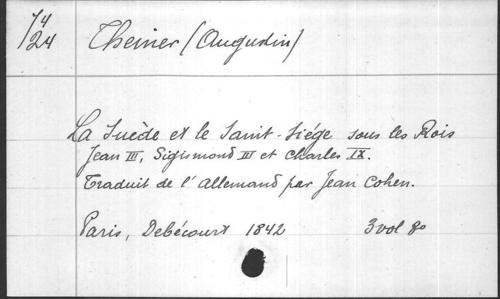 74
24
Theiner (Augustin)
La Suède et le Saint-Siége sous les Rois
Jean III, Sigismond III et Charles IX.
Traduit de l'Allemand par Jean Cohen.
Paris, Debécourt 1842 3 vol 8o